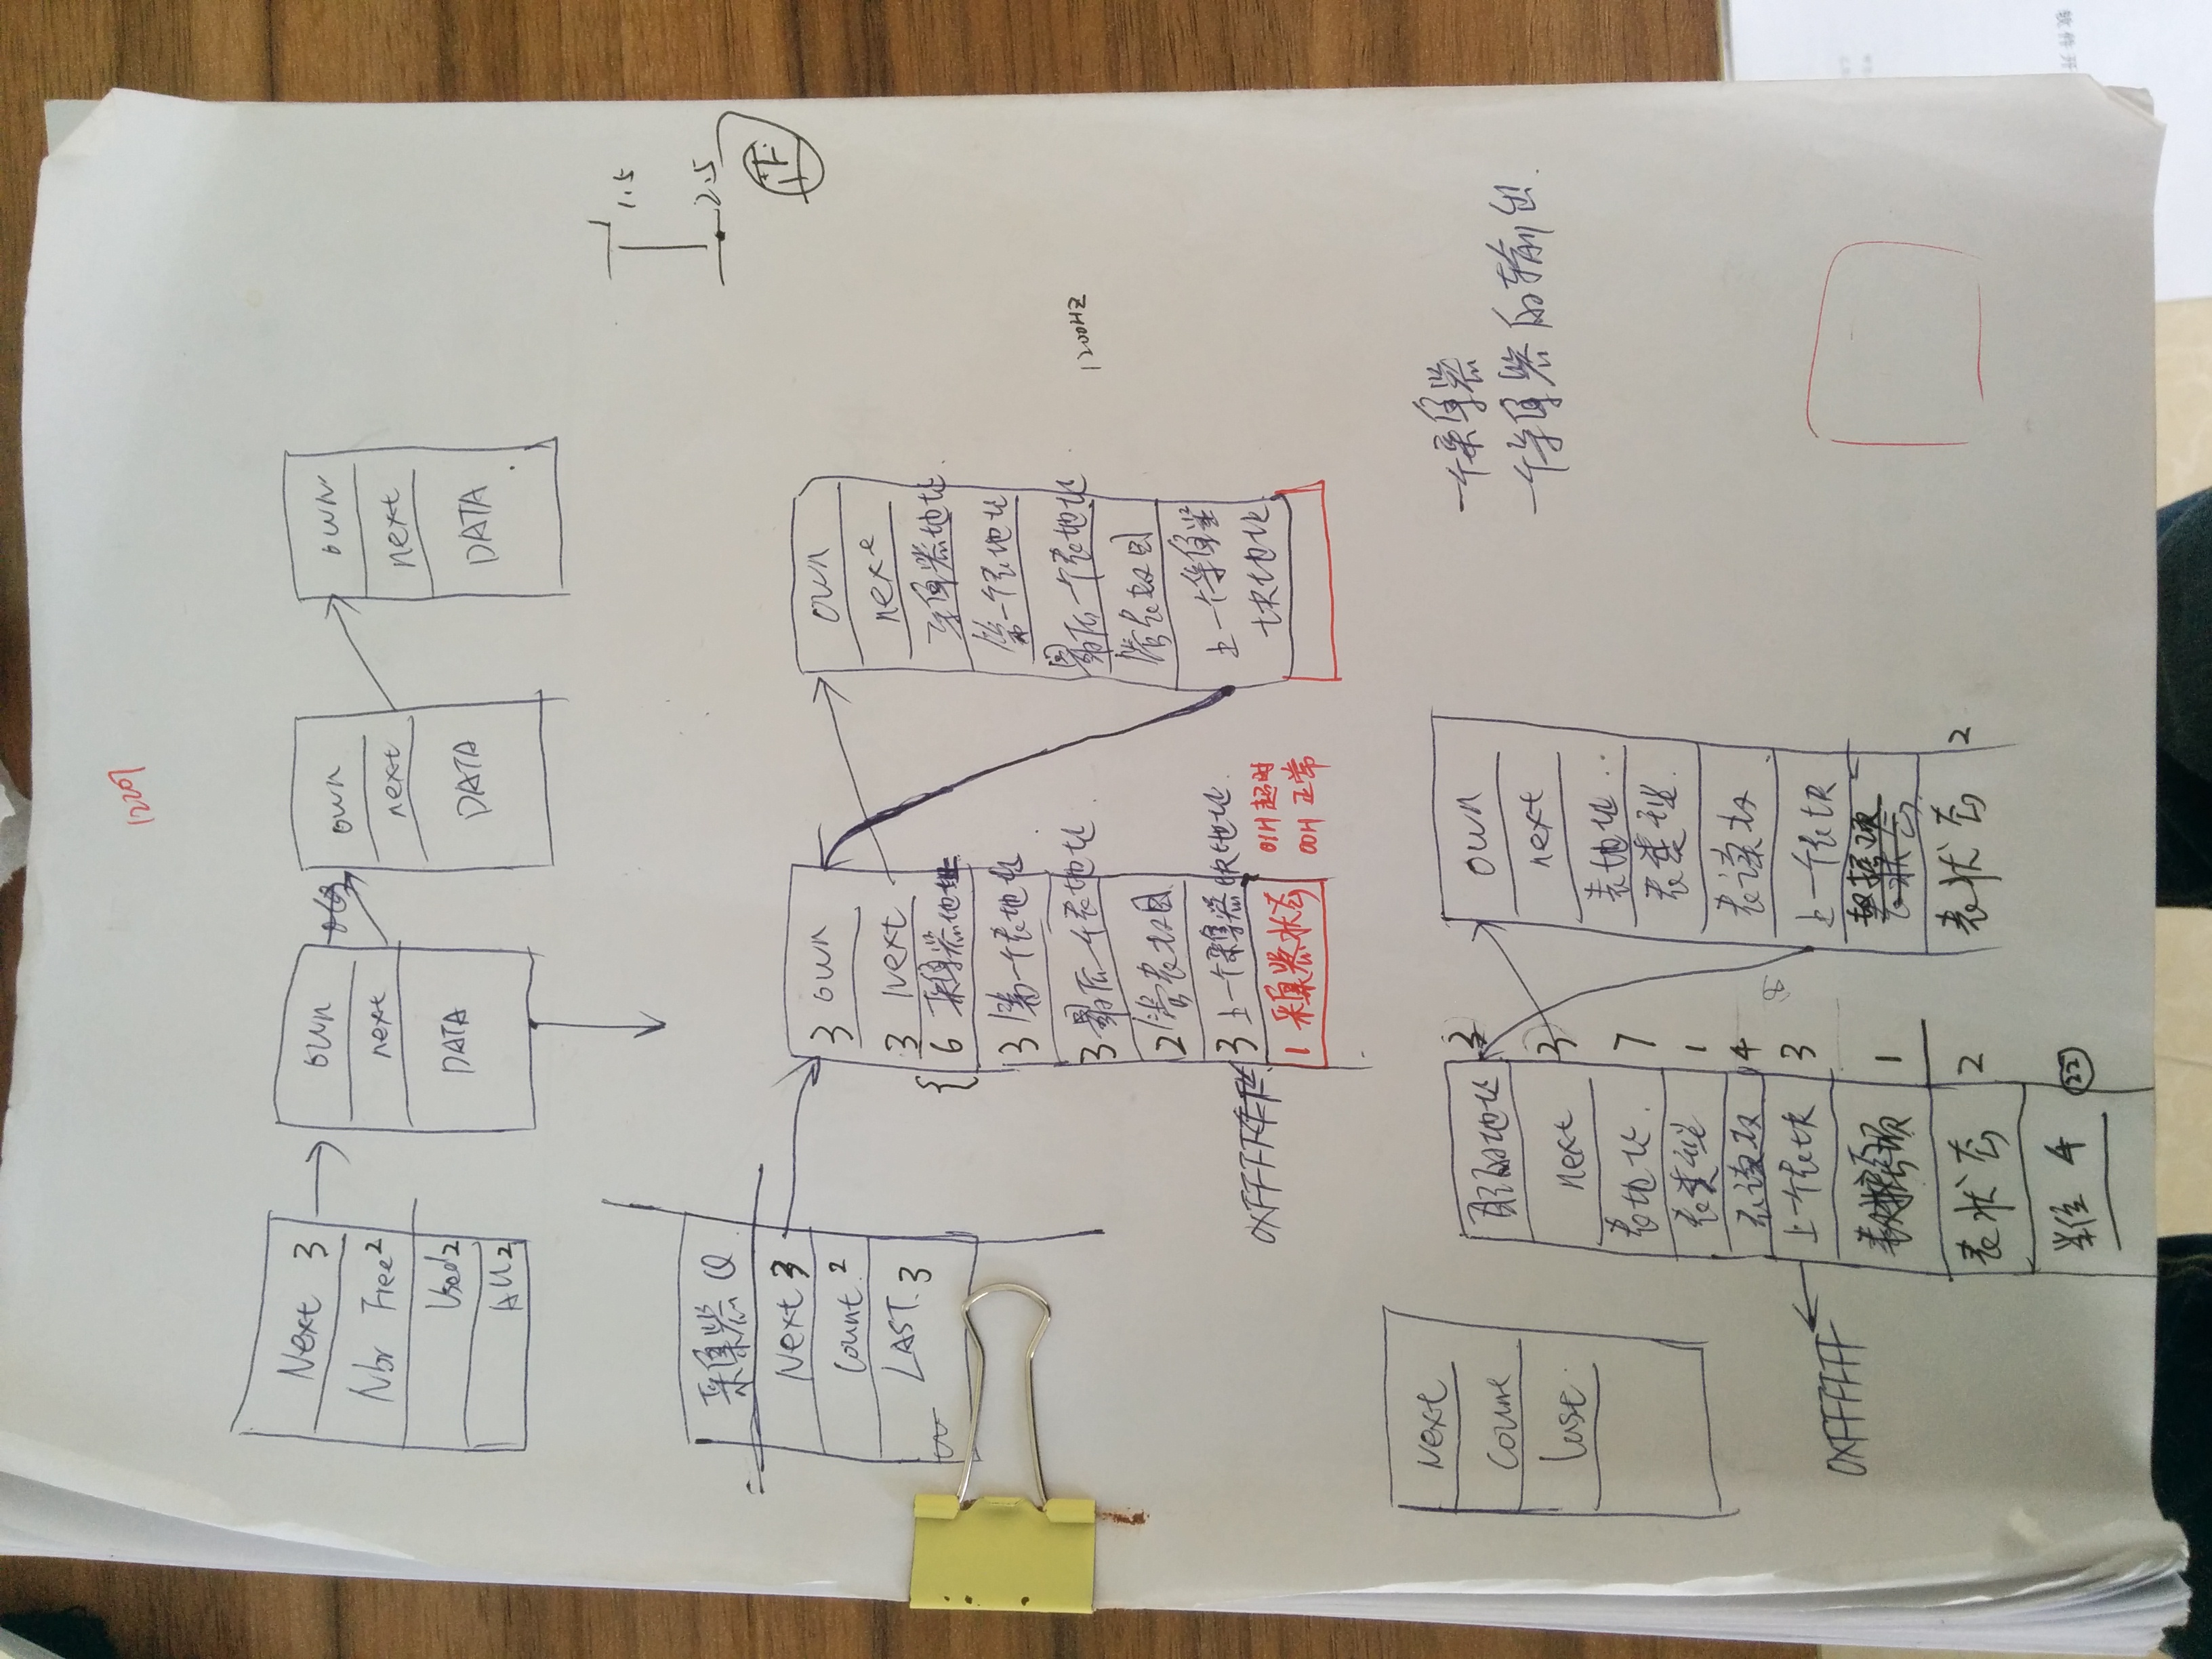 12207
Next 3
Nbr Free 2
Used 2
All 2
own
next
DATA
own
next
DATA
own
next
DATA
1.5
2.5
正
采集器 Q
Next 3
Count 2
LAST 3
3 own
3 Next
6 采集器地址
3 第一个表地址
3 最后一个表地址
2 管表数目
3 上一个采集器块地址
0xFFFFFF
1 采集器状态
01H 超时
00H 正常
own
next
采集器地址
第一个表地址
最后一个表地址
管表数目
上一个采集器
块地址
1200HZ
Next
Count
last
自己的地址 3
next 3
表地址 7
表类型 1
表读数 4
上一个表块 3
0XFFFFFF
1
表状态 2
单位 4
22
own
next
表地址
表类型
表读数
上一个表块
表状态 2
一个采集器
一个采集器的输出
软件开